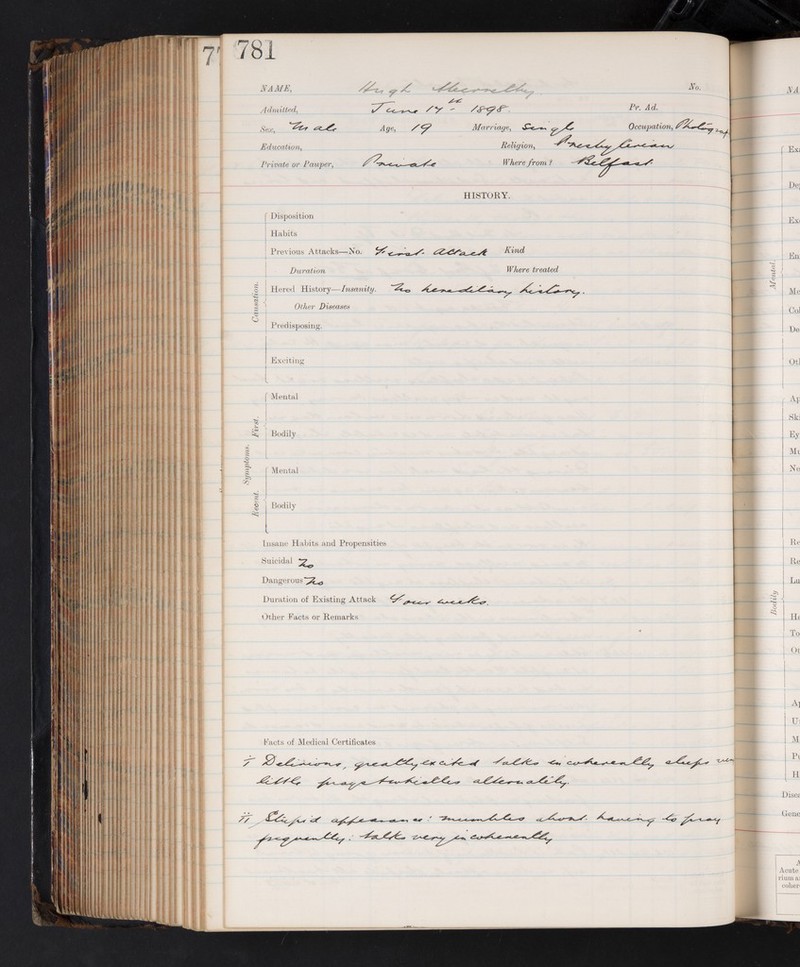 7
781
NAME, Hugh No.
Admitted, June 14th 1898. Pr. Ad.
Sex, Male Age, 19 Marriage, Single Occupation, Photog
Education, Religion, Presbyterian
Private or Pauper, Private Where from? Belfast
HISTORY.
Causation.
Disposition
Habits
Previous Attacks—No. First Attack Kind
Duration Where treated
Hered History—Insanity. No hereditary history.
Other Diseases
Predisposing.
Exciting
Symptoms.
First.
Mental
Bodily
Recent.
Mental
Bodily
Insane Habits and Propensities
Suicidal No
Dangerous No
Duration of Existing Attack Four weeks.
Other Facts or Remarks
Facts of Medical Certificates
i Delirious, greatly excited talks incoherently sleeps
little prays & whistles alternately
ii Stupid appearance: mumbles about having to pray
frequently: talks very incoherently
Mental.
Bodily